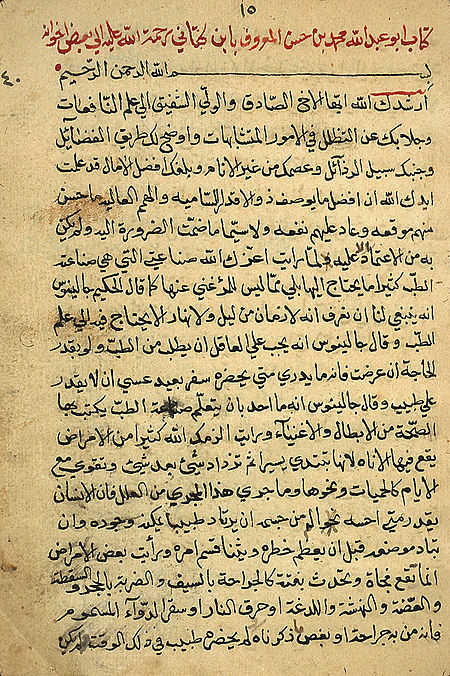 ١٥
كتاب ابو عبد الله محمد بن حسن المعروف بابن الكتاني رحمة الله عليه الي بعض اخوانه
٤٠
بسم الله الرحمن الرحيم
ارشدك الله ايها الاخ الصادق والولي الشفيق الي علم النافعات
عن في الامور المتشابهات واوضح لك طريق الفضايل
وجنبك سبيل الرذائل وعصمك من غير الانام وبلغك افضل الامال قد علمت
ايدك الله ان افضل ما يوصف ذو الاقدار الساميه والهمم العاليه ما حسن
منهم موقعه وعاد عليهم نفعه ولا سيما ما ضمت الضرورة اليه ولم يكن
به من الاعتماد عليه ولما رايت اعزك الله صناعتي التي هي صناعة
الطب كثيرا ما يحتاج اليها لي ما ليس للمرء غني عنها كما قال الحكيم جالينوس
انه ينبغي لنا ان نعرف انه لا زمان من ليل ولا نهار الا يحتاج فيه الي علم
الطب وقال جالينوس انه يجب علي العاقل ان يطلب من الطب ولو بقدر
الحاجة ان عرضت فانه ما يدري متي يحضره سفر بعيد عسي ان لا يقدر
علي طبيب وقال جالينوس انه ما احد بان يتعلم صناعة الطب يكتسب بها
الصحة من الابطال والاغنياء ورايت اكرمك الله كثيرا من الامراض
يقع فيها الاناه لانها تبتدي يسيرا ثم تزداد شئ بعد شئ وتقوي مع
الايام كالحميات ونحوها وما جري هذا المجري من العلل فان الانسان
يقدر متي احس من جسمه ان يرتاد طبيبا يمكنه وجوده وان
قبل ان يعظم خطره امره ورأيت بعض الامراض
انما تقع فجاة وتحدث بغتة كالجراحة بالسيف والضربة بالحجر والسقطة
والعضة والنهشة واللدغة او حرق النار او سقي الدواء المسموم
فانه من به جراحة او بعض ما ذكرناه لم يحضره طبيب في ذلك الوقت